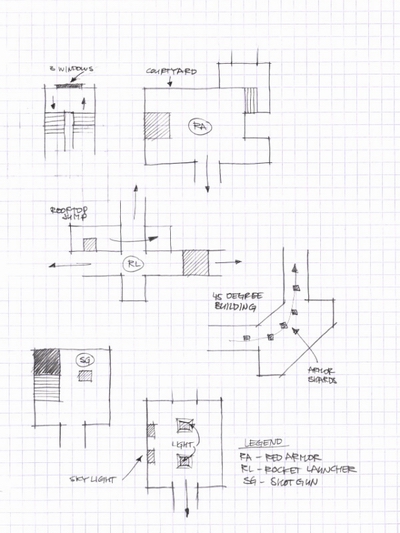 3 WINDOWS
COURTYARD
RA
ROOFTOP
JUMP
RL
45 DEGREE
BUILDING
ARMOR
SHARDS
SG
LIGHT
SKYLIGHT
LEGEND
RA - RED ARMOR
RL - ROCKET LAUNCHER
SG - SHOTGUN